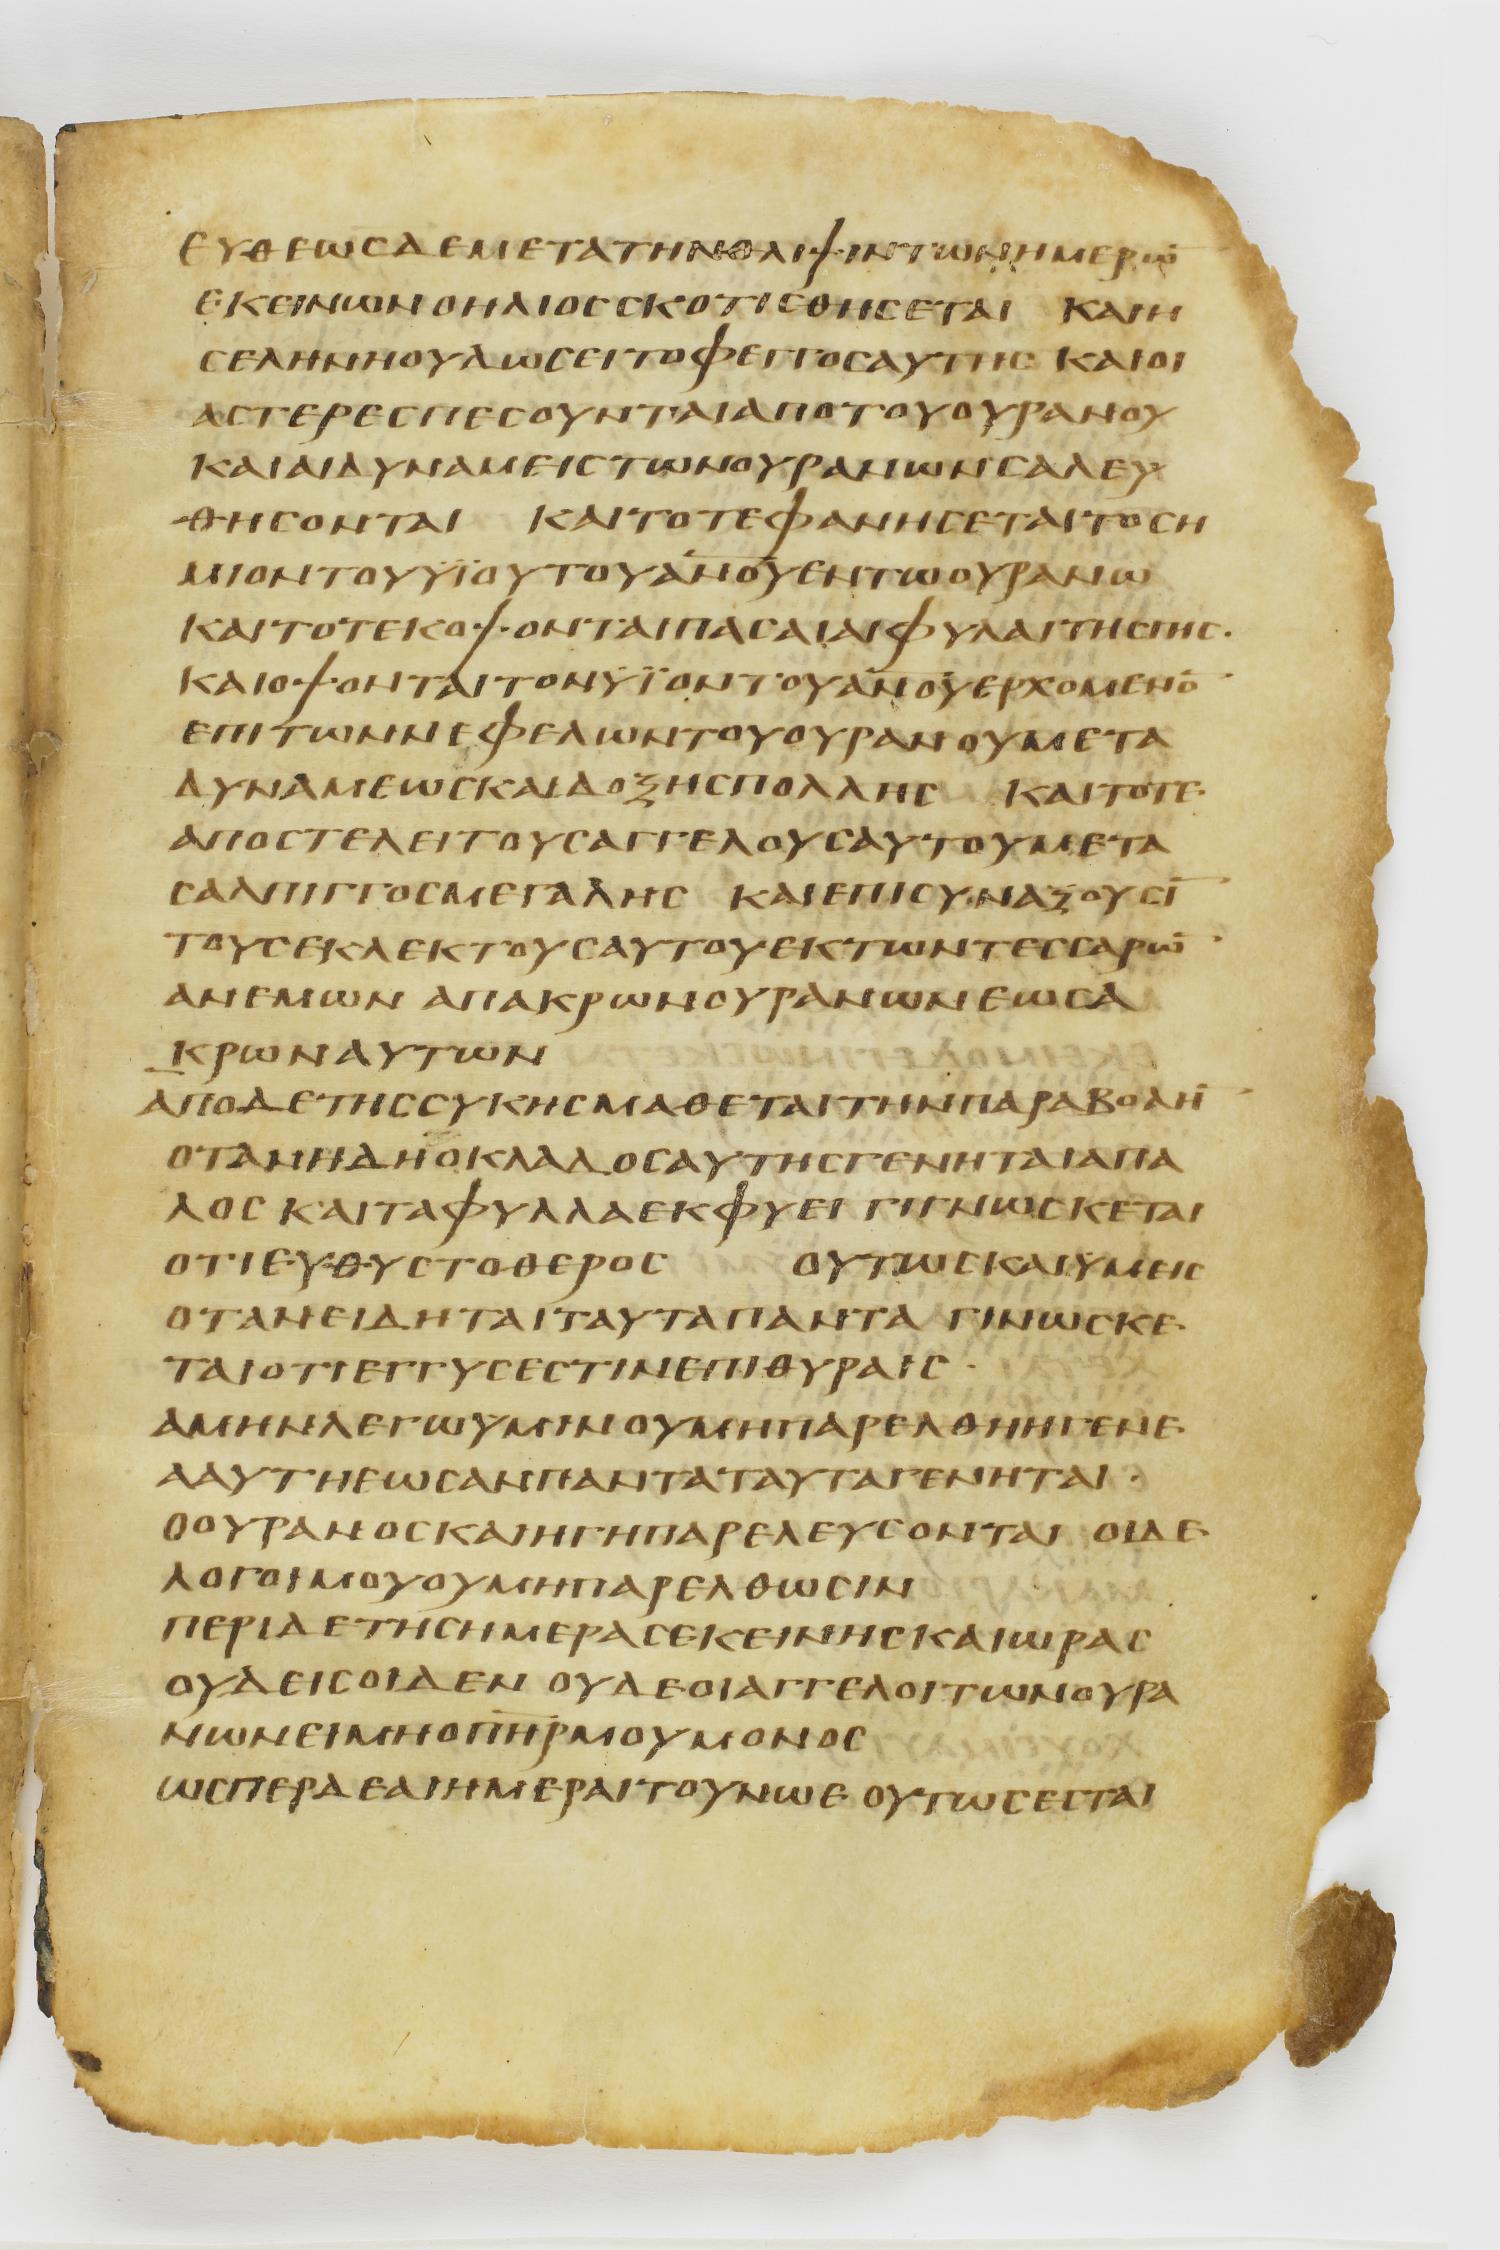 ΕΥΘΕΩСΔΕΜΕΤΑΤΗΝΘΛΙΨΙΝΤΩΝΗΜΕΡΩ̅
ΕΚΕΙΝΩΝΟΗΛΙΟССΚΟΤΙСΘΗСΕΤΑΙ ΚΑΙΗ
СΕΛΗΝΗΟΥΔΩСΕΙΤΟΦΕΓΓΟСΑΥΤΗС ΚΑΙΟΙ
ΑСΤΕΡΕСΠΕСΟΥΝΤΑΙΑΠΟΤΟΥΟΥΡΑΝΟΥ
ΚΑΙΑΙΔΥΝΑΜΕΙСΤΩΝΟΥΡΑΝΩΝСΑΛΕΥ
ΘΗСΟΝΤΑΙ ΚΑΙΤΟΤΕΦΑΝΗСΕΤΑΙΤΟСΗ
ΜΙΟΝΤΟΥΫΪΟΥΤΟΥΑ̅Ν̅Ο̅Υ̅ΕΝΤΩΟΥΡΑΝΩ
ΚΑΙΤΟΤΕΚΟΨΟΝΤΑΙΠΑСΑΙΑΙΦΥΛΑΙΤΗСΓΗС·
ΚΑΙΟΨΟΝΤΑΙΤΟΝΫΪΟΝΤΟΥΑ̅Ν̅Ο̅Υ̅ΕΡΧΟΜΕΝΟ̅
ΕΠΙΤΩΝΝΕΦΕΛΩΝΤΟΥΟΥΡΑΝΟΥΜΕΤΑ
ΔΥΝΑΜΕΩСΚΑΙΔΟΞΗСΠΟΛΛΗС ΚΑΙΤΟΤΕ
ΑΠΟСΤΕΛΕΙΤΟΥСΑΓΓΕΛΟΥСΑΥΤΟΥΜΕΤΑ
СΑΛΠΙΓΓΟСΜΕΓΑΛΗС ΚΑΙΕΠΙСΥΝΑΞΟΥСΙ̅
ΤΟΥСΕΚΛΕΚΤΟΥСΑΥΤΟΥΕΚΤΩΝΤΕССΑΡΩ̅
ΑΝΕΜΩΝ ΑΠΑΚΡΩΝΟΥΡΑΝΩΝΕΩСΑ
ΚΡΩΝΑΥΤΩΝ
ΑΠΟΔΕΤΗССΥΚΗСΜΑΘΕΤΑΙΤΗΝΠΑΡΑΒΟΛΗ̅
ΟΤΑΝΗΔΗΟΚΛΑΔΟСΑΥΤΗСΓΕΝΗΤΑΙΑΠΑ
ΛΟС ΚΑΙΤΑΦΥΛΛΑΕΚΦΥΕΙ ΓΙΓΝΩСΚΕΤΑΙ
ΟΤΙΕΥΘΥСΤΟΘΕΡΟС ΟΥΤΩСΚΑΙΫΜΕΙС
ΟΤΑΝΕΙΔΗΤΑΙΤΑΥΤΑΠΑΝΤΑ ΓΙΝΩСΚΕ
ΤΑΙΟΤΙΕΓΓΥСΕСΤΙΝΕΠΙΘΥΡΑΙС·
ΑΜΗΝΛΕΓΩΫΜΙΝΟΥΜΗΠΑΡΕΛΘΗΗΓΕΝΕ
ΑΑΥΤΗΕΩСΑΝΠΑΝΤΑΤΑΥΤΑΓΕΝΗΤΑΙ·
ΟΟΥΡΑΝΟСΚΑΙΗΓΗΠΑΡΕΛΕΥСΟΝΤΑΙ ΟΙΔΕ
ΛΟΓΟΙΜΟΥΟΥΜΗΠΑΡΕΛΘΩСΙΝ
ΠΕΡΙΔΕΤΗСΗΜΕΡΑСΕΚΕΙΝΗСΚΑΙΩΡΑС
ΟΥΔΕΙСΟΙΔΕΝ ΟΥΔΕΟΙΑΓΓΕΛΟΙΤΩΝΟΥΡΑ
ΝΩΝΕΙΜΗΟΠ̅Η̅Ρ̅ΜΟΥΜΟΝΟС
ΩСΠΕΡΔΕΑΙΗΜΕΡΑΙΤΟΥΝΩΕ ΟΥΤΩСΕСΤΑΙ